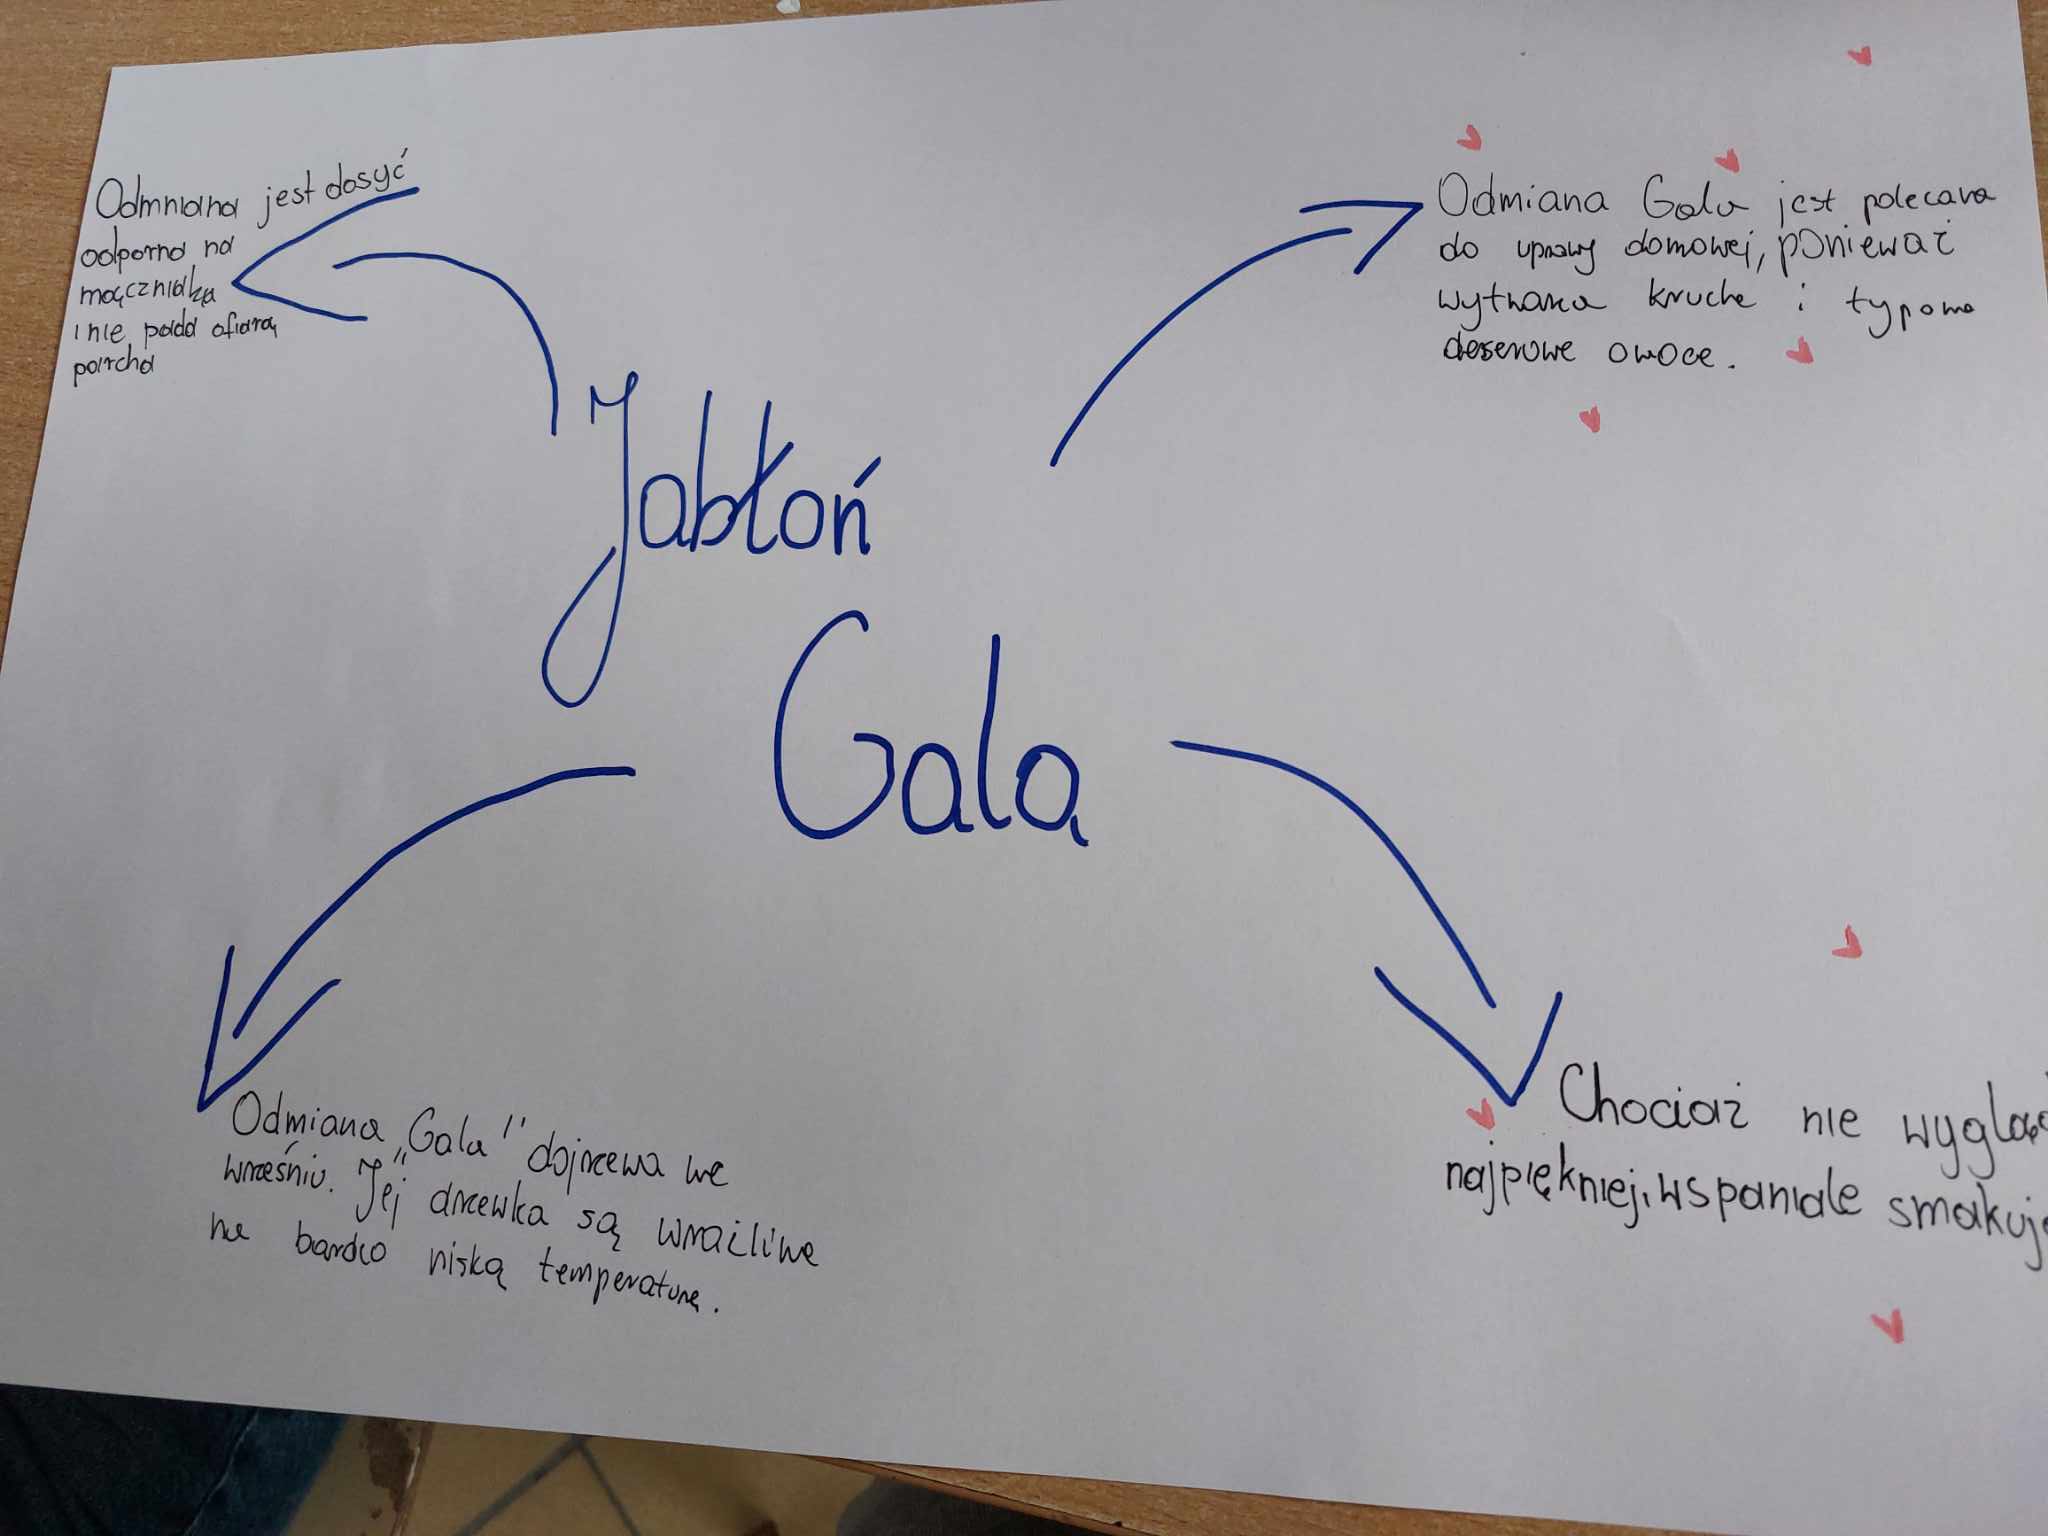 Jabłoń
Gala
Odmniana jest dosyć
odporna na
mączniaka
i nie pada ofiarą
parcha
Odmiana Gala jest polecana
do uprawy domowej, ponieważ
wytwarza kruche i typowo
deserowe owoce.
Odmiana „Gala" dojrzewa we
wrześniu. Jej drzewka są wrażliwe
na bardzo niską temperaturę.
Chociaż nie wygląd
najpiękniej, wspaniale smakuje